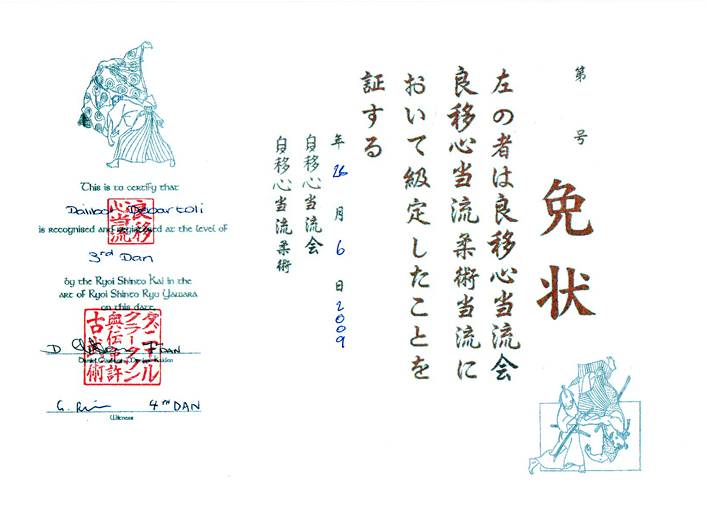 第 号
免状
左の者は良移心当流会
良移心当流柔術当流に
おいて級定したことを
証する
年 26 月 6 日 2009
良移心当流会
良移心当流柔術
This is to certify that
良移心当流
is recognised and registered at the level of
3rd Dan
by the Ryoi Shinto Kai in the
art of Ryoi Shinto Ryu Yawara
on this date
古武術
4TH DAN
Witness